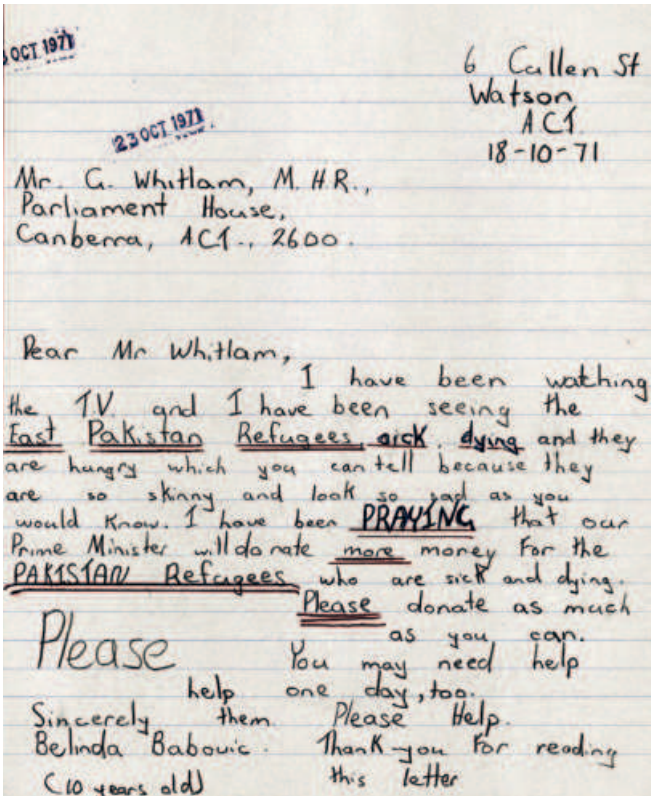 OCT 1971
6 Cullen St
Watson
ACT.
23 OCT 1971
18-10-71
Mr. G. Whitlam, M.H.R.,
Parliament House,
Canberra, ACT., 2600.
Dear Mr Whitlam,
I have been watching
the T.V. and I have been seeing the
East Pakistan Refugees sick, dying and they
are hungry which you can tell because they
are so skinny and look so sad as you
would know. I have been PRAYING that our
Prime Minister will donate more money for the
PAKISTAN Refugees who are sick and dying.
Please donate as much
as you can.
Please You may need help
help one day, too.
Sincerely them. Please Help.
Belinda Babovic. Thank-you for reading
(10 years old) this letter